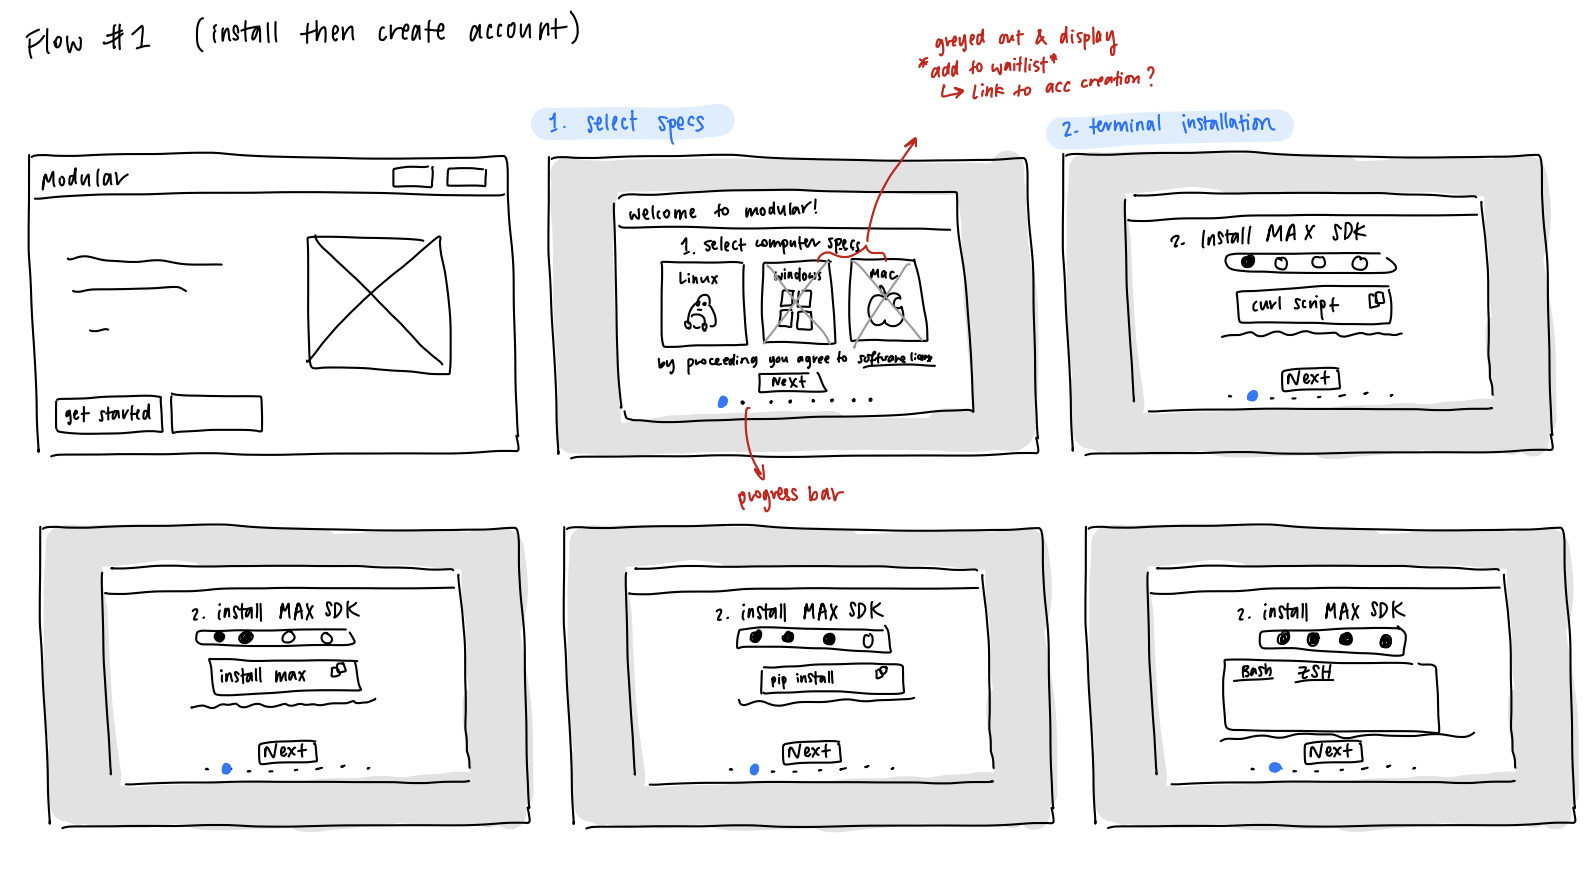 Flow #1 (install then create account)
greyed out & display
*add to waitlist*
↳ link to acc creation?
1. select specs
2. terminal installation
Modular
get started
welcome to modular!
1. select computer specs
Linux
windows
Mac
by proceeding you agree to software
Next
progress bar
2. Install MAX SDK
curl script
Next
2. install MAX SDK
install max
Next
2. install MAX SDK
pip install
Next
2. install MAX SDK
Bash ZSH
Next